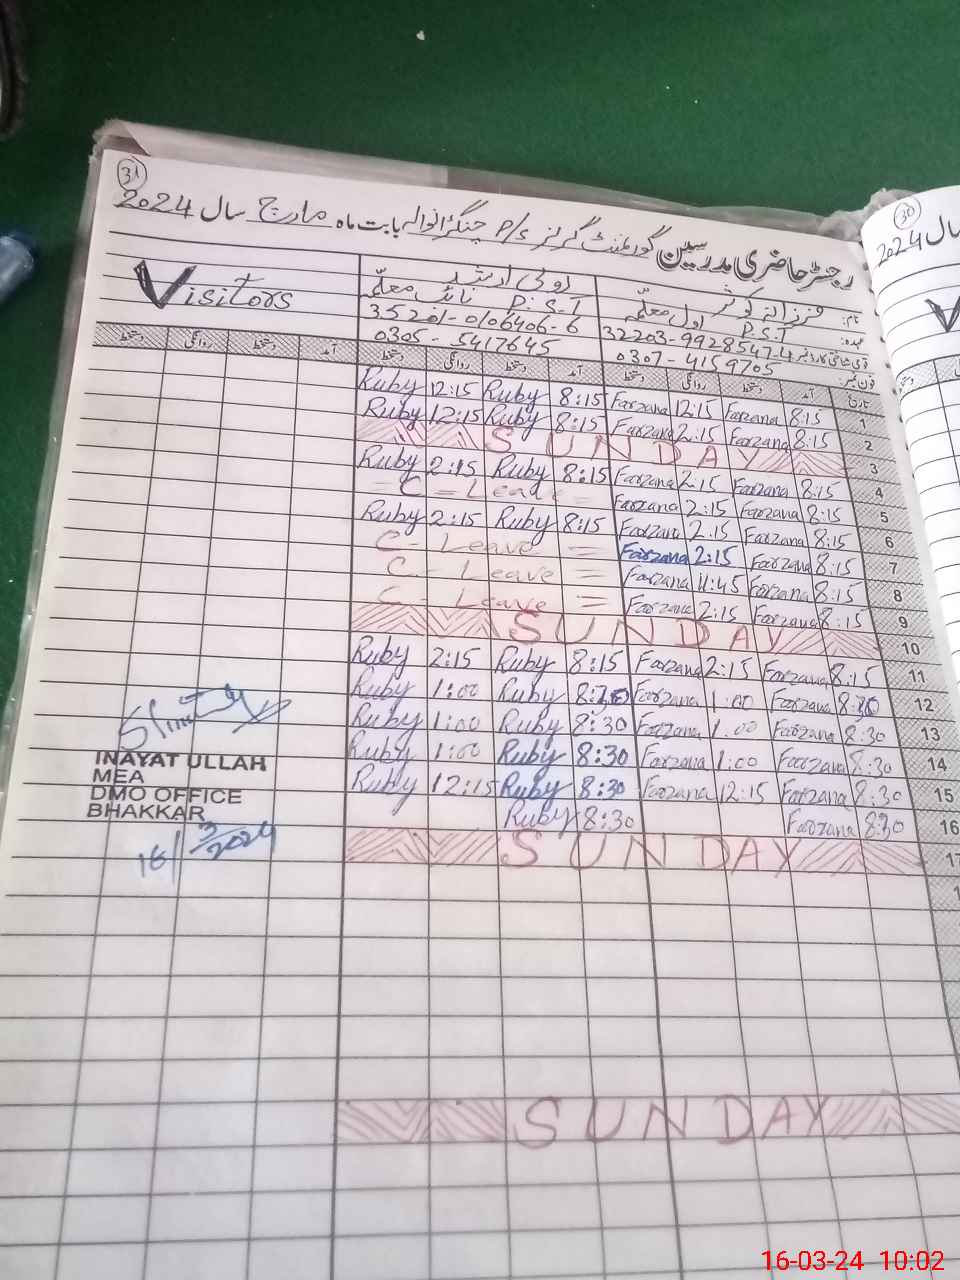 31
رجسٹر حاضری مدرسین گورنمنٹ گرلز P/S چنگڑانوالہ بابت ماہ مارچ سال 2024
30
سال 2024
Visitors
نام: فرزانہ کوثر روبی ارشد
عہدہ: P.S.T اول معلمہ P.S.T نائب معلمہ
قومی شناختی کارڈ نمبر 32203-9928547-4 35201-0106406-6
فون نمبر: 0307-4159705 0305-5417645
تاریخ آمد دستخط روانگی دستخط آمد دستخط روانگی دستخط آمد دستخط روانگی دستخط
Ruby 12:15 Ruby 8:15 Farzana 12:15 Farzana 8:15 1
Ruby 12:15 Ruby 8:15 Farzana 2:15 Farzana 8:15 2
SUNDAY 3
Ruby 2:15 Ruby 8:15 Farzana 2:15 Farzana 8:15 4
= C - Leave = Farzana 2:15 Farzana 8:15 5
Ruby 2:15 Ruby 8:15 Farzana 2:15 Farzana 8:15 6
C - Leave = Farzana 2:15 Farzana 8:15 7
C - Leave = Farzana 11:45 Farzana 8:15 8
C - Leave = Farzana 2:15 Farzana 8:15 9
SUNDAY 10
Ruby 2:15 Ruby 8:15 Farzana 2:15 Farzana 8:15 11
Ruby 1:00 Ruby 8:30 Farzana 1:00 Farzana 8:30 12
Ruby 1:00 Ruby 8:30 Farzana 1:00 Farzana 8:30 13
Ruby 1:00 Ruby 8:30 Farzana 1:00 Farzana 8:30 14
Ruby 12:15 Ruby 8:30 Farzana 12:15 Farzana 8:30 15
Ruby 8:30 Farzana 8:30 16
SUNDAY 17
INAYAT ULLAH
MEA
DMO OFFICE
BHAKKAR
16/3/2024
SUNDAY
16-03-24 10:02